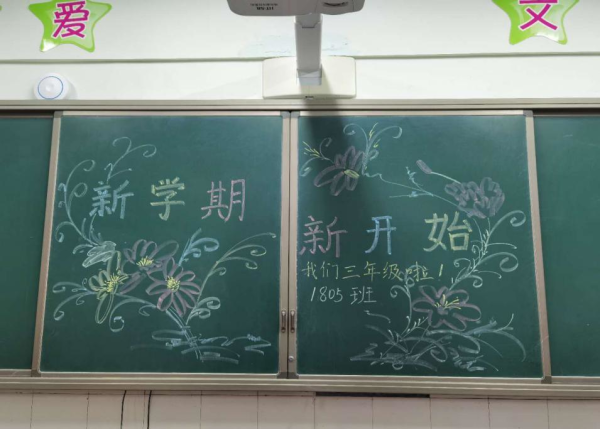 爱
文
新学期
新开始
我们三年级啦！
1805班